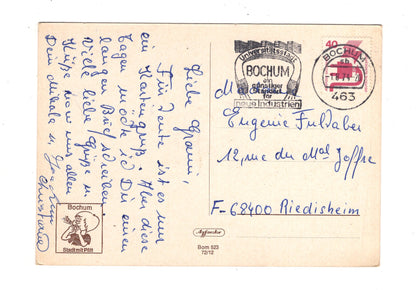 Liebe Gommi,
Für heute ist es nur
ein Kartengruß. Aber diese
Tagen möchte ich Dir einen
langen Brief schreiben.
Viele liebe Grüße u.
Küsse von uns allen
Dein Nikola u,
Christiane
Bochum
Stadt mit Pfiff
Universitätsstadt
BOCHUM
ein
günstiger
Standort
für
neue Industrien
40
BOCHUM
463
Eugenie Fuldaber
12, rue du Mal Joffre
F-68400 Riedisheim
Bom 523
72/12